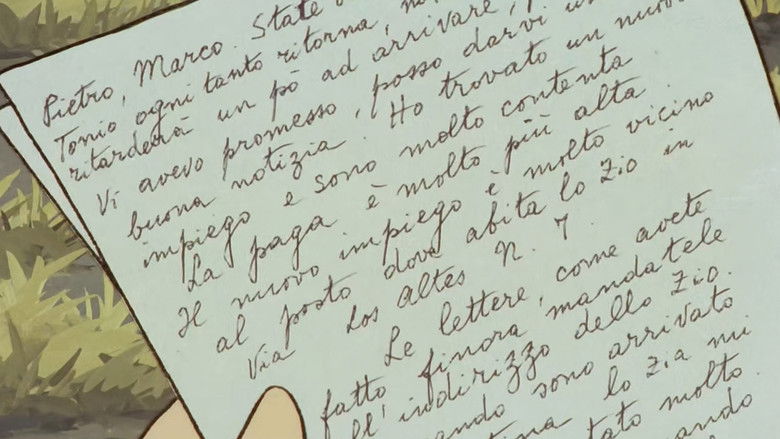 Pietro, Marco. State
Tonio ogni tanto ritorna,
ritarderà un pò ad arrivare,
Vi avevo promesso, posso darvi
buona notizia. Ho trovato un nuovo
impiego e sono molto contenta
La paga è molto più alta.
Il nuovo impiego è molto vicino
al posto dove abita lo Zio in
Via Los Altes N. 7.
Le lettere, come avete
fatto finora mandatele
all'indirizzo dello Zio.
sono arrivato
lo Zia mi
molto.